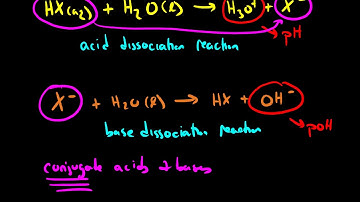 HX(aq) + H₂O(l) → H₃O⁺ + X⁻
pH
acid dissociation reaction
X⁻ + H₂O(l) → HX + OH⁻
pOH
base dissociation reaction
conjugate acids & bases